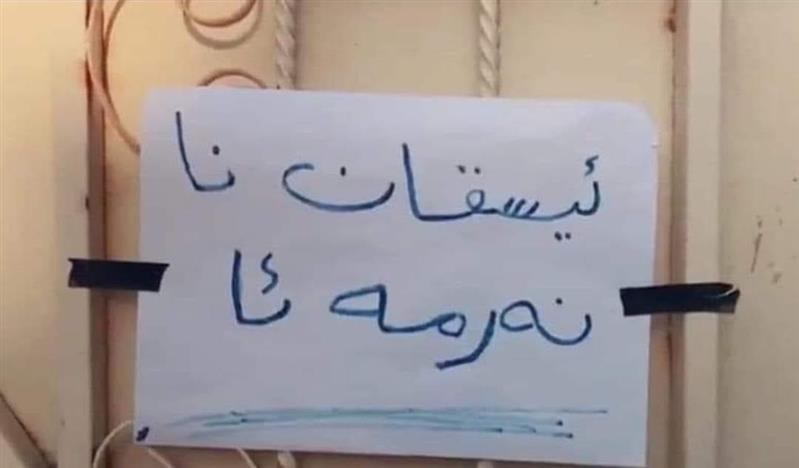 ئیسقان نا
نەرمە ئا